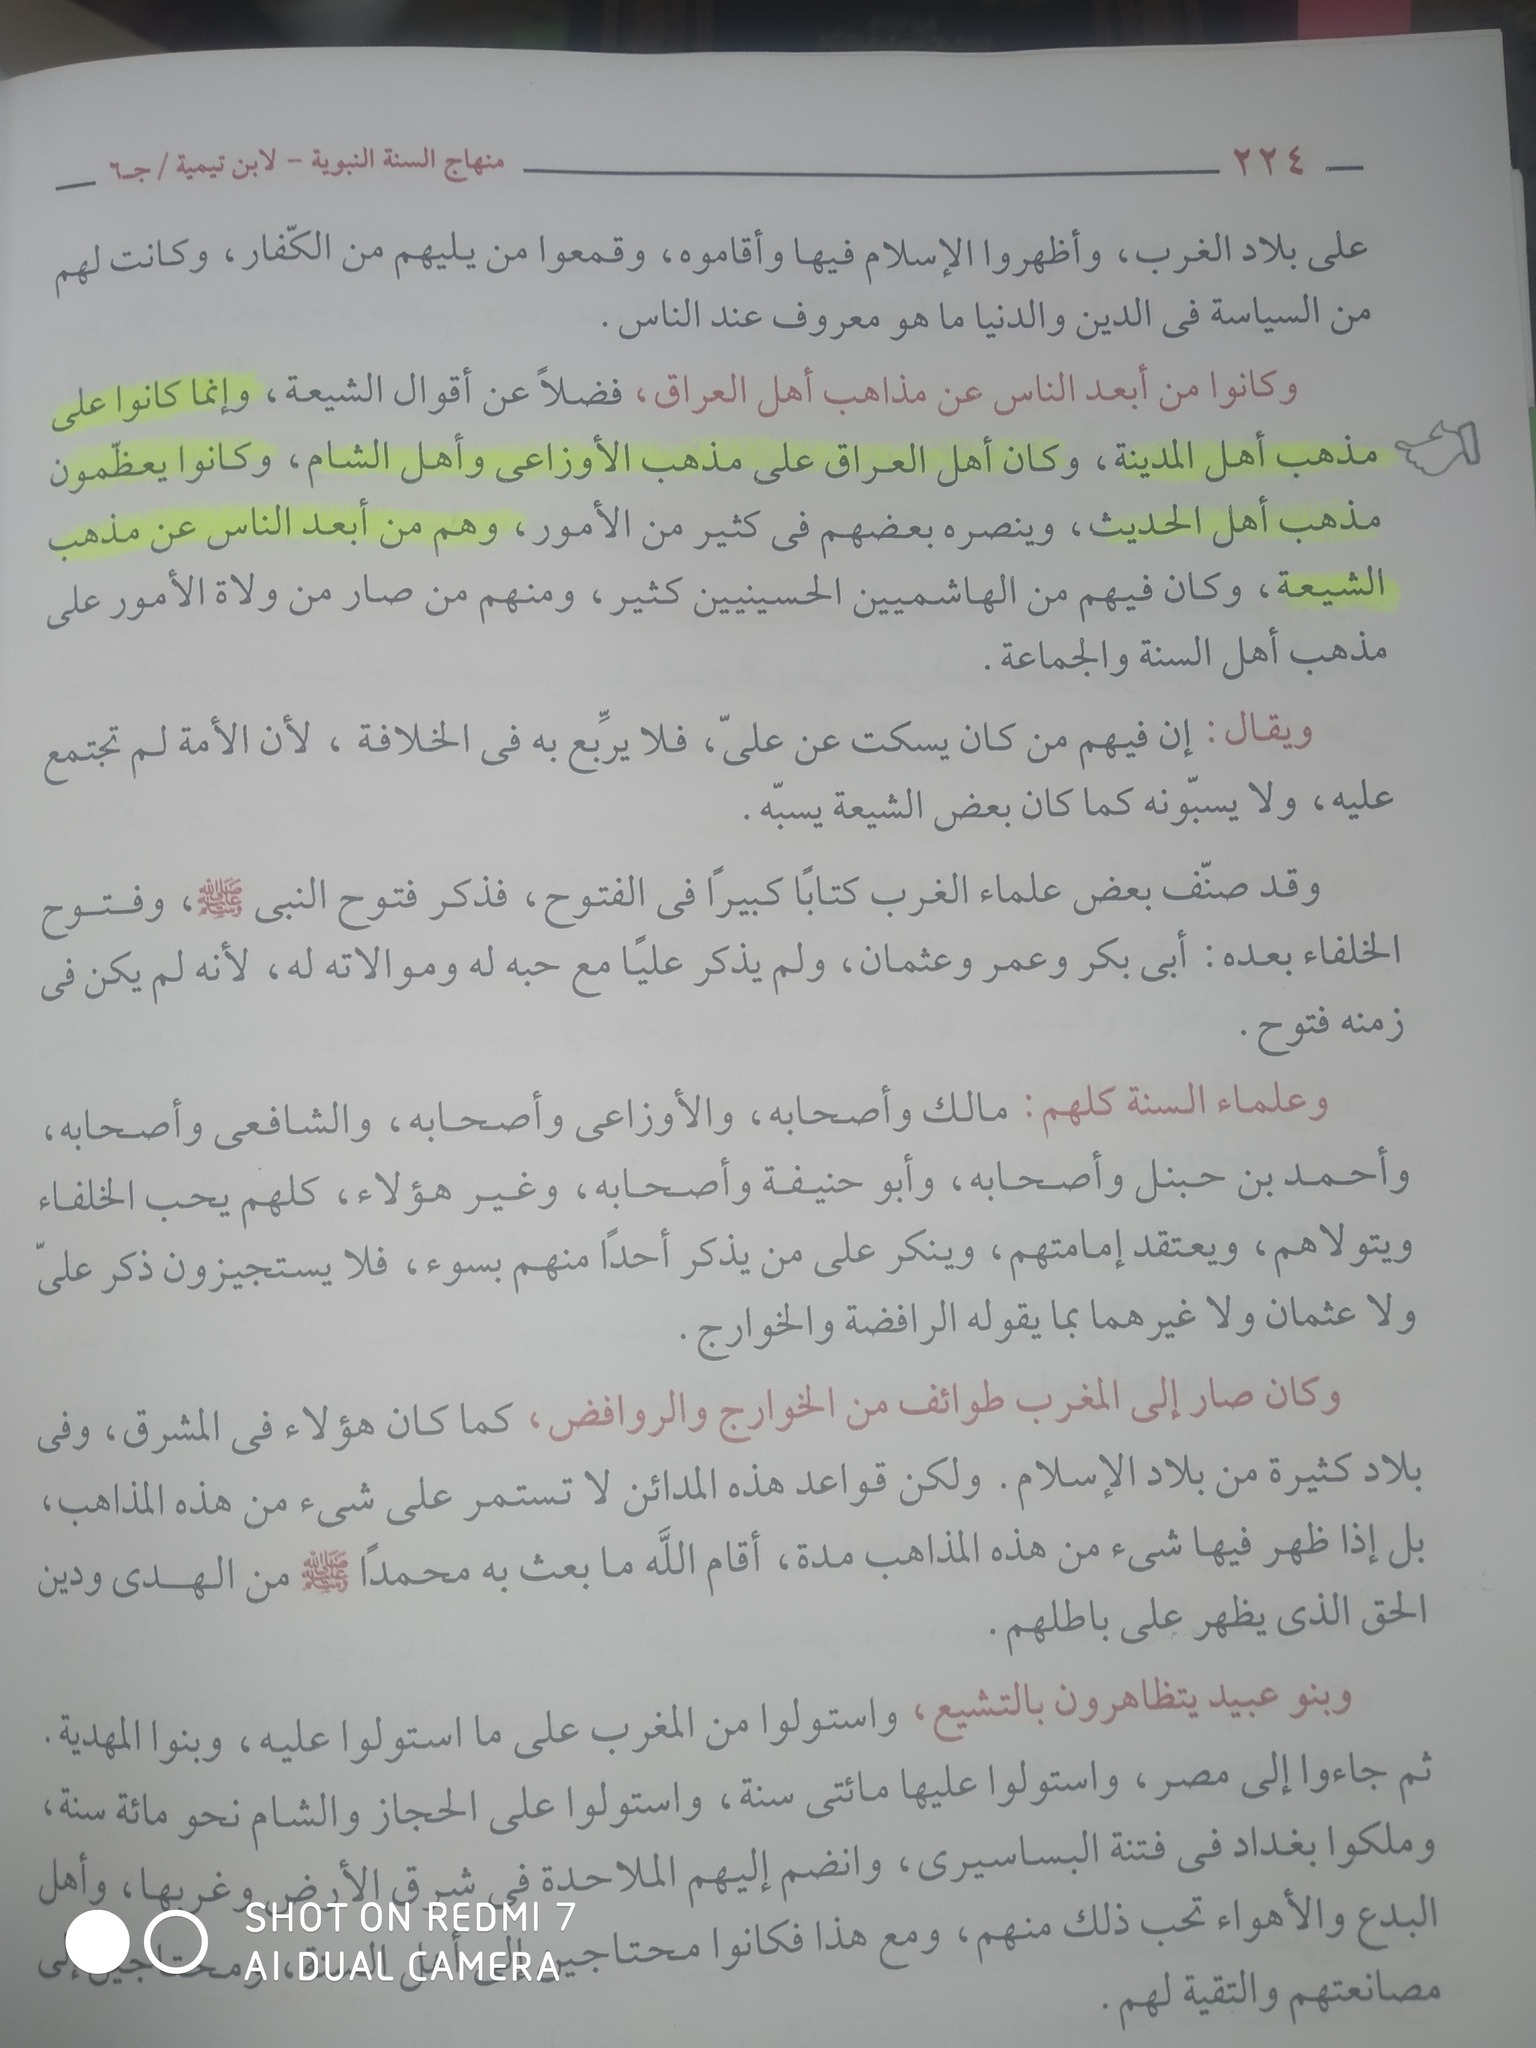 ٢٢٤
منهاج السنة النبوية - لابن تيمية / جـ٦
على بلاد الغرب، وأظهروا الإسلام فيها وأقاموه، وقمعوا من يليهم من الكفّار، وكانت لهم
من السياسة فى الدين والدنيا ما هو معروف عند الناس.
وكانوا من أبعد الناس عن مذاهب أهل العراق، فضلاً عن أقوال الشيعة، وإنما كانوا على
مذهب أهل المدينة، وكان أهل العراق على مذهب الأوزاعى وأهل الشام، وكانوا يعظّمون
مذهب أهل الحديث، وينصره بعضهم فى كثير من الأمور، وهم من أبعد الناس عن مذهب
الشيعة، وكان فيهم من الهاشميين الحسينيين كثير، ومنهم من صار من ولاة الأمور على
مذهب أهل السنة والجماعة.
ويقال: إن فيهم من كان يسكت عن علىّ، فلا يربِّع به فى الخلافة ، لأن الأمة لم تجتمع
عليه، ولا يسبّونه كما كان بعض الشيعة يسبّه.
وقد صنّف بعض علماء الغرب كتابًا كبيرًا فى الفتوح، فذكر فتوح النبى ﷺ، وفتوح
الخلفاء بعده: أبى بكر وعمر وعثمان، ولم يذكر عليًا مع حبه له وموالاته له، لأنه لم يكن فى
زمنه فتوح.
وعلماء السنة كلهم: مالك وأصحابه، والأوزاعى وأصحابه، والشافعى وأصحابه،
وأحمد بن حبنل وأصحابه، وأبو حنيفة وأصحابه، وغير هؤلاء، كلهم يحب الخلفاء
ويتولاهم، ويعتقد إمامتهم، وينكر على من يذكر أحدًا منهم بسوء، فلا يستجيزون ذكر علىّ
ولا عثمان ولا غيرهما بما يقوله الرافضة والخوارج.
وكان صار إلى المغرب طوائف من الخوارج والروافض، كما كان هؤلاء فى المشرق، وفى
بلاد كثيرة من بلاد الإسلام. ولكن قواعد هذه المدائن لا تستمر على شىء من هذه المذاهب،
بل إذا ظهر فيها شىء من هذه المذاهب مدة، أقام اللَّه ما بعث به محمدًا ﷺ من الهدى ودين
الحق الذى يظهر على باطلهم.
وبنو عبيد يتظاهرون بالتشيع، واستولوا من المغرب على ما استولوا عليه، وبنوا المهدية.
ثم جاءوا إلى مصر، واستولوا عليها مائتى سنة، واستولوا على الحجاز والشام نحو مائة سنة،
وملكوا بغداد فى فتنة البساسيرى، وانضم إليهم الملاحدة فى شرق الأرض وغربها، وأهل
البدع والأهواء تحب ذلك منهم، ومع هذا فكانوا محتاجين إلى أهل السنة، ومحتاجين إلى
مصانعتهم والتقية لهم.
SHOT ON REDMI 7
AI DUAL CAMERA